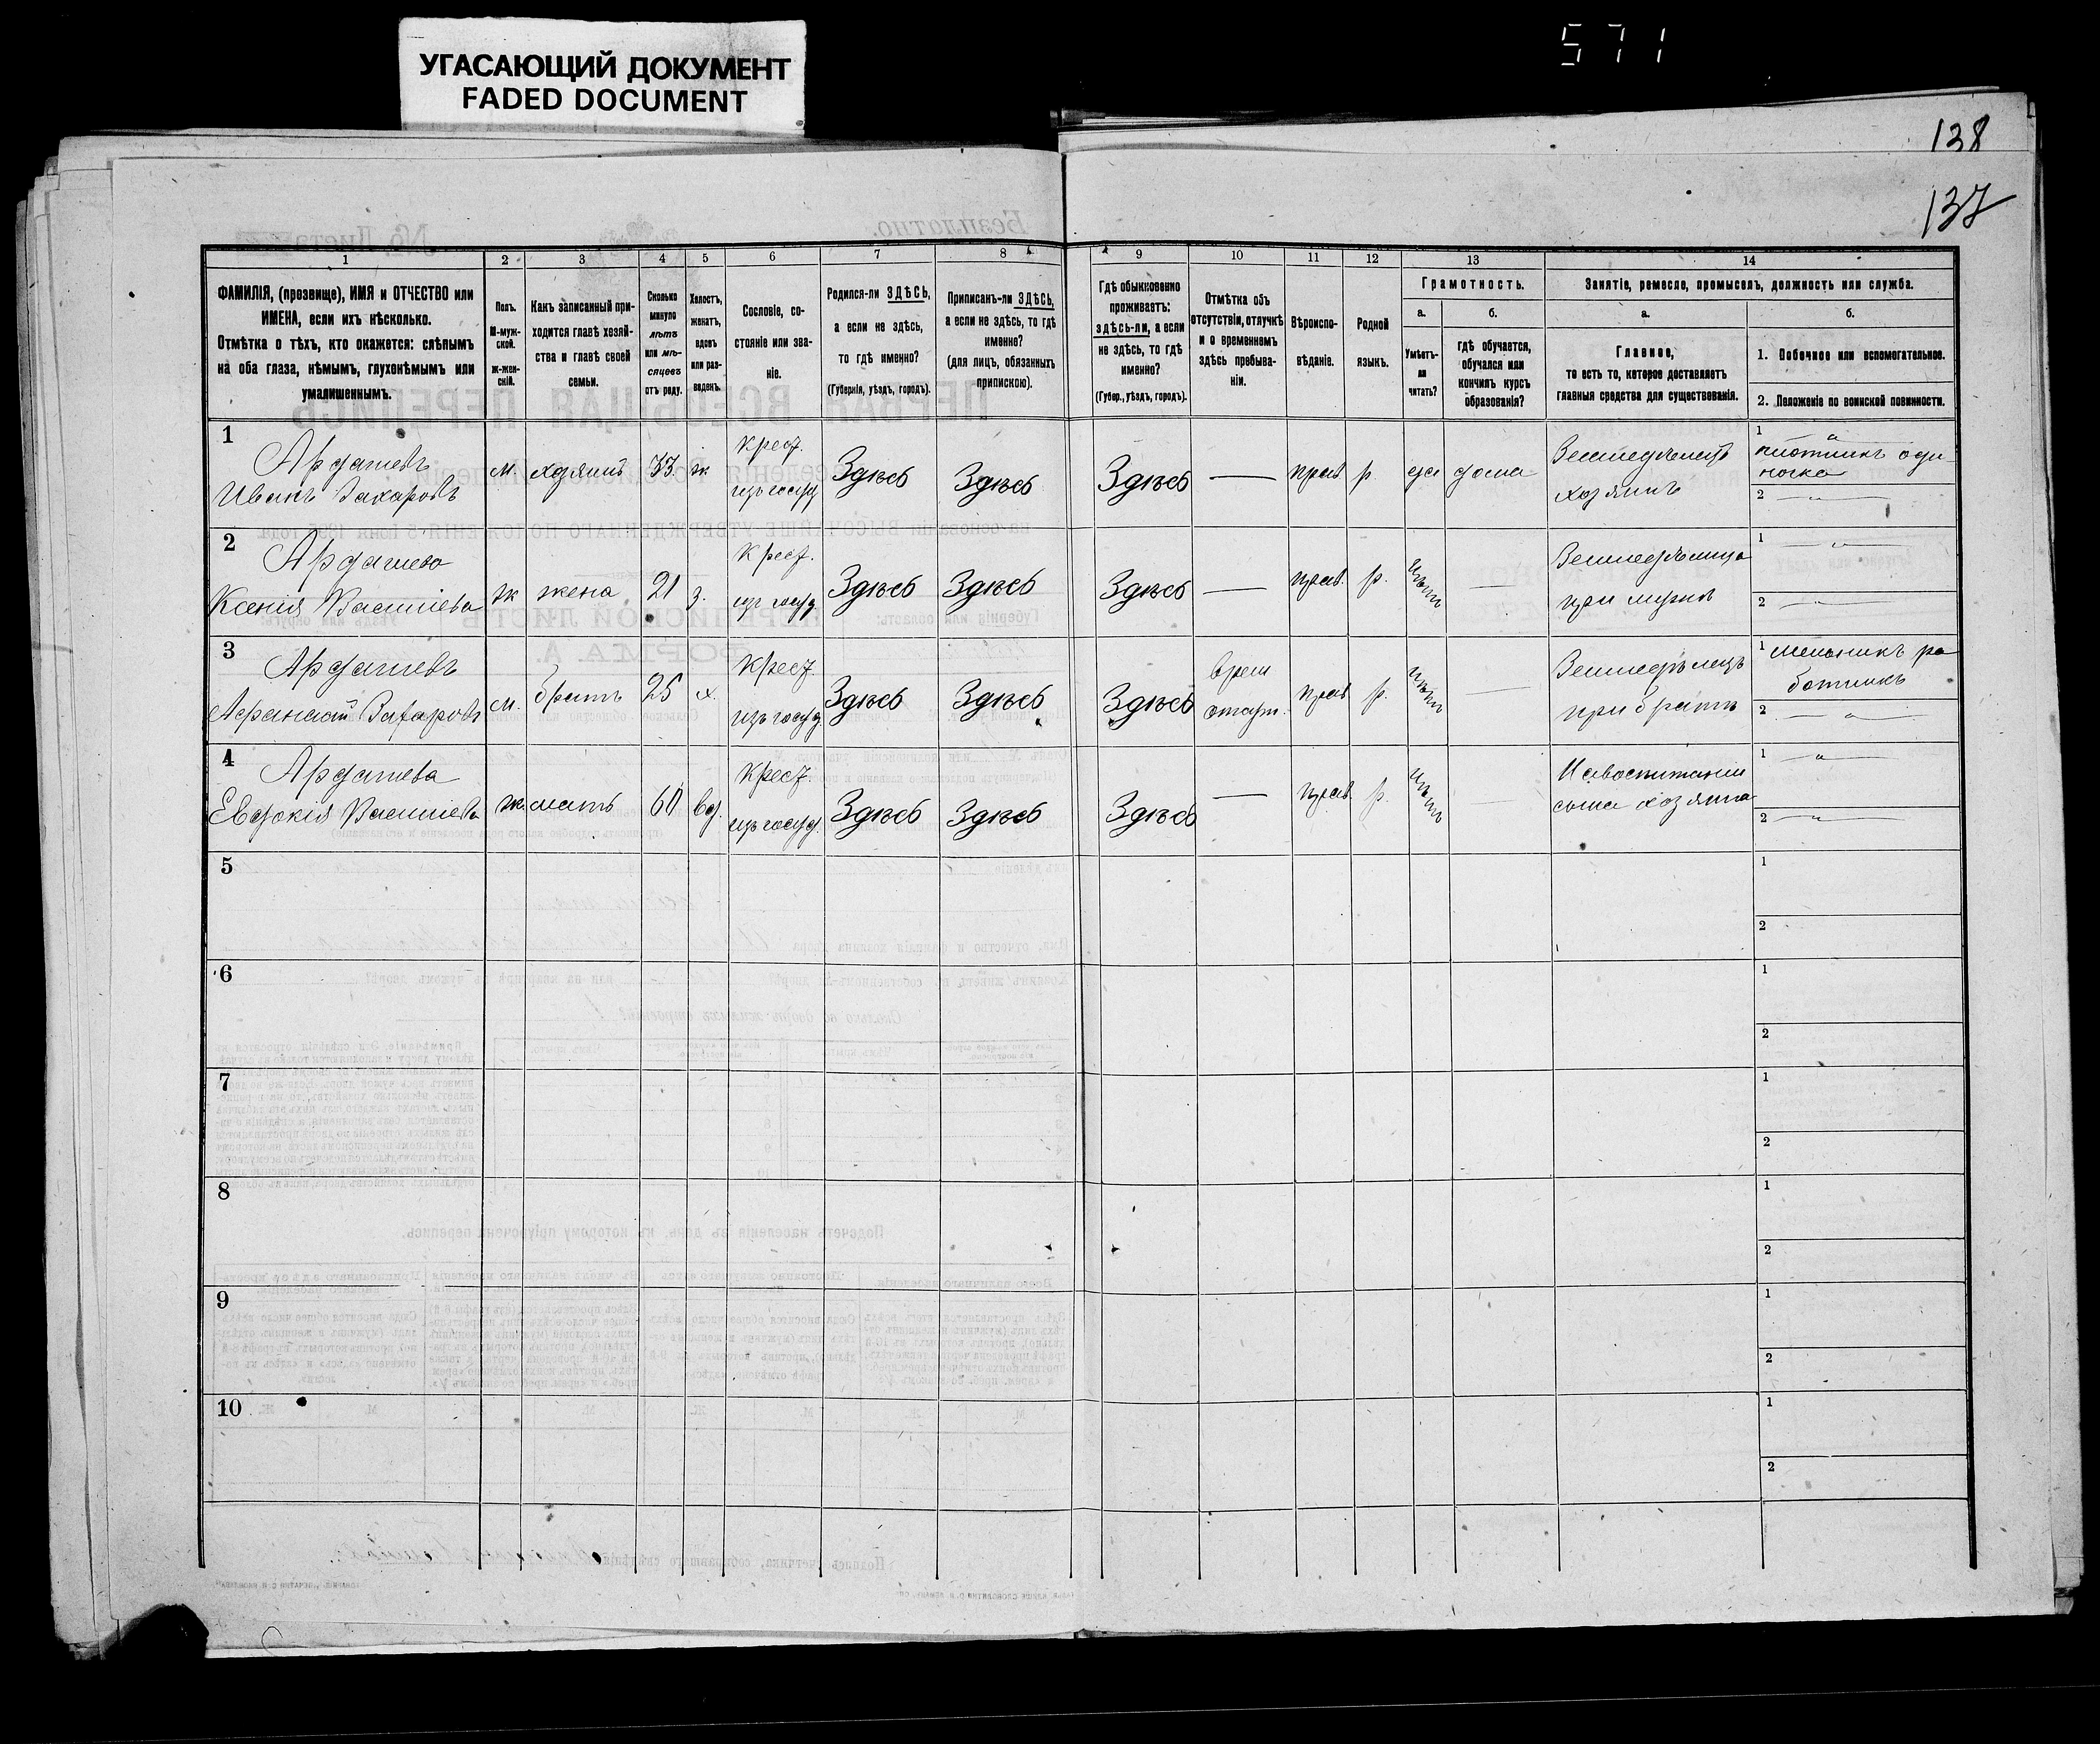 УГАСАЮЩИЙ ДОКУМЕНТ
FADED DOCUMENT
571
138
137
1 2 3 4 5 6 7 8 9 10 11 12 13 14
ФАМИЛІЯ, (прозвище), ИМЯ и ОТЧЕСТВО или
ИМЕНА, если ихъ нѣсколько.
Отмѣтка о тѣхъ, кто окажется: слѣпымъ
на оба глаза, нѣмымъ, глухонѣмымъ или
умалишеннымъ.
Полъ.
М-муж-
ской.
Ж-жен-
скій.
Какъ записанный при-
ходится главѣ хозяй-
ства и главѣ своей
семьи.
Сколько
минуло
лѣтъ
или мѣ-
сяцевъ
отъ роду.
Холостъ,
женатъ,
вдовъ
или раз-
веденъ.
Сословіе, со-
стояніе или зва-
ніе.
Родился-ли ЗДѢСЬ,
а если не здѣсь,
то гдѣ именно?
(Губернія, уѣздъ, городъ).
Приписанъ-ли ЗДѢСЬ,
а если не здѣсь, то гдѣ
именно?
(для лицъ, обязанныхъ
припискою).
Гдѣ обыкновенно
проживаетъ:
здѣсь-ли, а если
не здѣсь, то гдѣ
именно?
(Губер., уѣздъ, городъ).
Отмѣтка объ
отсутствіи, отлучкѣ
и о временномъ
здѣсь пребыва-
ніи.
Вѣроиспо-
вѣданіе.
Родной
языкъ.
Грамотность.
а.
Умѣетъ-
ли
читать?
б.
гдѣ обучается,
обучался или
кончилъ курсъ
образованія?
Занятіе, ремесло, промыселъ, должность или служба.
а.
Главное,
то есть то, которое доставляетъ
главныя средства для существованія.
б.
1. Побочное или вспомогательное.
2. Положеніе по воинской повинности.
1
Ардашевъ
Иванъ Захаровъ
м.
хозяинъ
33
ж
крест.
изъ госуд
Здѣсь
Здѣсь
Здѣсь
—
прав.
р.
да
дома
Земледѣлецъ
хозяинъ
1 — " —
плотникъ оди
ночка
2 — " —
2
Ардашева
Ксенія Васильева
ж
жена
21
з.
Крест.
изъ госуд.
Здѣсь
Здѣсь
Здѣсь
—
прав.
р.
нѣтъ
—
Земледѣлица
при мужѣ
1 — " —
2 — " —
3
Ардашевъ
Афанасій Захаровъ
м.
братъ
25
х.
Крест.
изъ госуд.
Здѣсь
Здѣсь
Здѣсь
врем
отлуч.
прав
р.
нѣтъ
—
Земледѣлецъ
при братѣ
1 мельникъ ра
ботникъ
2 — " —
4
Ардашева
Евдокія Васильева
ж.
мать
60
вд.
Крест.
изъ госуд.
Здѣсь
Здѣсь
Здѣсь
—
прав.
р.
нѣтъ
—
На воспитаніи
сына хозяина
1 — " —
2 — " —
5
1
2
6
1
2
7
1
2
8
1
2
9
1
2
10
1
2